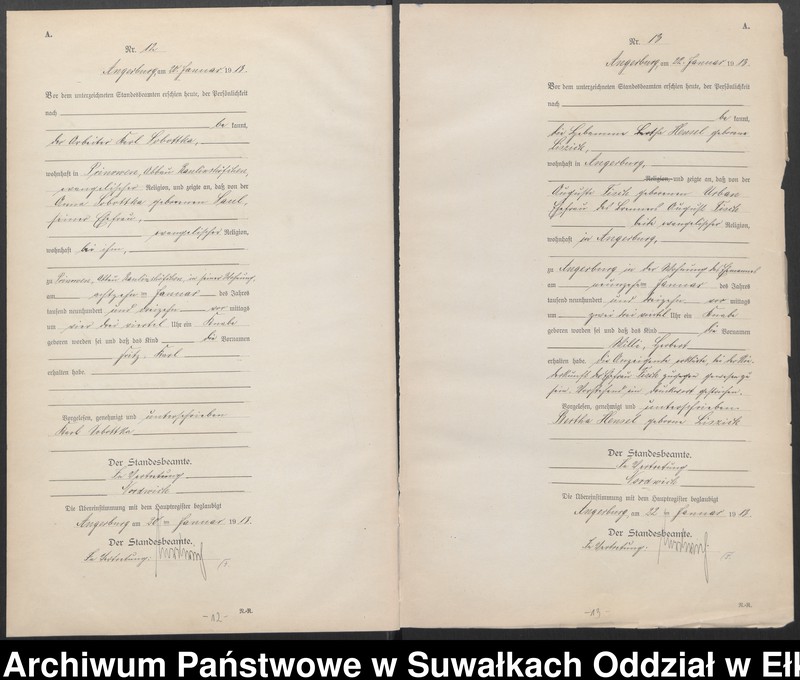 A.
Nr. 12
Angerburg am 20. Januar 1913.
Vor dem unterzeichneten Standesbeamten erschien heute, der Persönlichkeit
nach
be kannt,
der Arbeiter Karl Sobottka,
wohnhaft in Prinowen, Abbau
evangelischer Religion, und zeigte an, daß von der
Anna Sobottka geborenen
seiner Ehefrau,
evangelischer Religion,
wohnhaft bei ihm,
zu Prinowen, Abbau in seiner Wohnung,
am achtzehnten Januar des Jahres
tausend neunhundert und dreizehn vor mittags
um vier drei viertel Uhr ein Knabe
geboren worden sei und daß das Kind die Vornamen
Fritz Karl
erhalten habe.
Vorgelesen, genehmigt und unterschrieben
Karl Sobottka
Der Standesbeamte.
In Vertretung
Die Übereinstimmung mit dem Hauptregister beglaubigt
Angerburg am 20ten Januar 1913.
Der Standesbeamte.
In Vertretung:
-12-
R.-R.
A.
Nr. 13
Angerburg am 22. Januar 1913.
Vor dem unterzeichneten Standesbeamten erschien heute, der Persönlichkeit
nach
be kannt,
die Hebamme Bertha Hensel geborene
Liszick,
wohnhaft in Angerburg,
Religion, und zeigte an, daß von der
Auguste geborenen Urban
Ehefrau des August
beide evangelischer Religion,
wohnhaft in Angerburg,
zu Angerburg in der Wohnung des Ehemannes
am neunzehnten Januar des Jahres
tausend neunhundert und dreizehn vor mittags
um zwei drei viertel Uhr ein Knabe
geboren worden sei und daß das Kind die Vornamen
Willi, Herbert
erhalten habe. Die Anzeigende erklärte, bei der Nie-
derkunft der Ehefrau zugegen gewesen zu
sein. Vorstehend ein Druckwort gestrichen.
Vorgelesen, genehmigt und unterschrieben
Bertha Hensel geborene Liszick
Der Standesbeamte.
In Vertretung
Die Übereinstimmung mit dem Hauptregister beglaubigt
Angerburg am 22ten Januar 1913.
Der Standesbeamte.
In Vertretung:
-13-
R.-R.
Archiwum Państwowe w Suwałkach Oddział w Eł